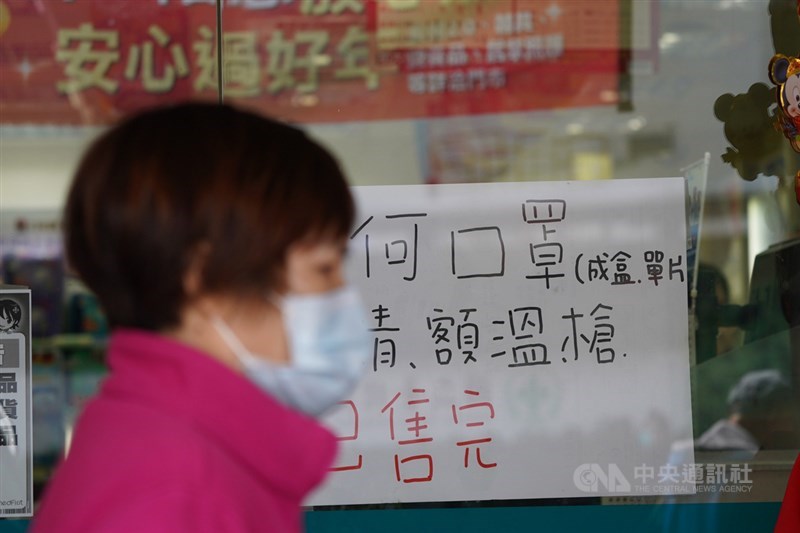 安心過好年
何口罩(成盒.單片
青、額溫槍.
已售完
品
貨
品
medFirst
中央通訊社
THE CENTRAL NEWS AGENCY